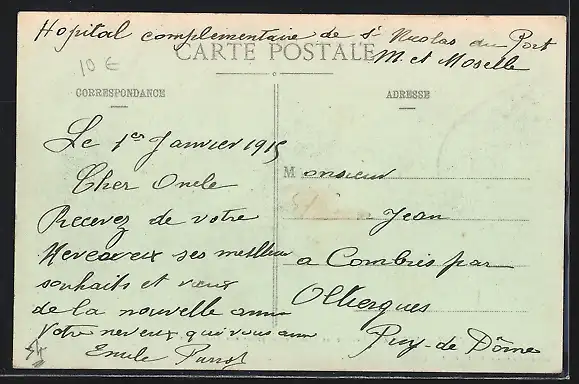 Hopital complementaire de St Nicolas du Port
M. et Moselle
CARTE POSTALE
10 €
CORRESPONDANCE
ADRESSE
Le 1er Janvier 1915
Cher Oncle
Recevez de votre
Neveaveux ses meilleu
souhaits et vœux
de la nouvelle anne
Votre neveux qui vous aime
Emile
Monsieur
Jean
a Combris par
Olliergues
Puy-de Dôme